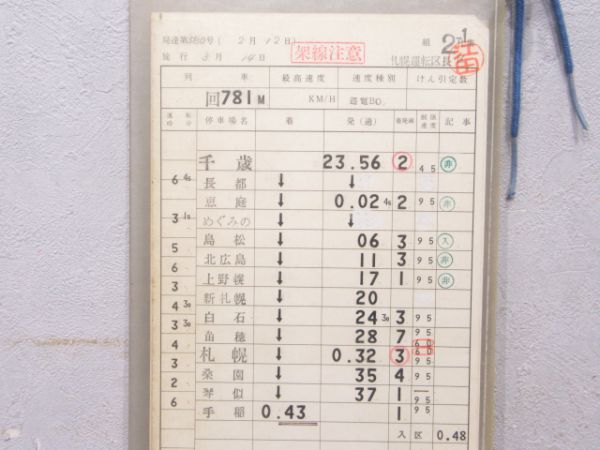 局達第580号 ( 2月12日)
組 2の1
架線注意
施行 3月14日
札幌運転区長
江田
列車 最高速度 速度種別 けん引定数
回781M KM/H 通電B0.
運転時分 停車場名 着 発(通) 着発線 制限速度 記事
千歳 23.56 2 45 非
6 4s 長都 ↓ ↓
恵庭 ↓ 0.02 4s 2 95 非
3 1s めぐみの ↓ ↓
5 島松 ↓ 06 3 95 入
6 北広島 ↓ 11 3 95 非
3 上野幌 ↓ 17 1 95 非
新札幌 ↓ 20
4 30 白石 ↓ 24 30 3 95
3 30 苗穂 ↓ 28 7 95 60
4 札幌 ↓ 0.32 3 60 95
3 桑園 ↓ 35 4 95
2 琴似 ↓ 37 1 95
6 手稲 0.43 1 95
入区 0.48